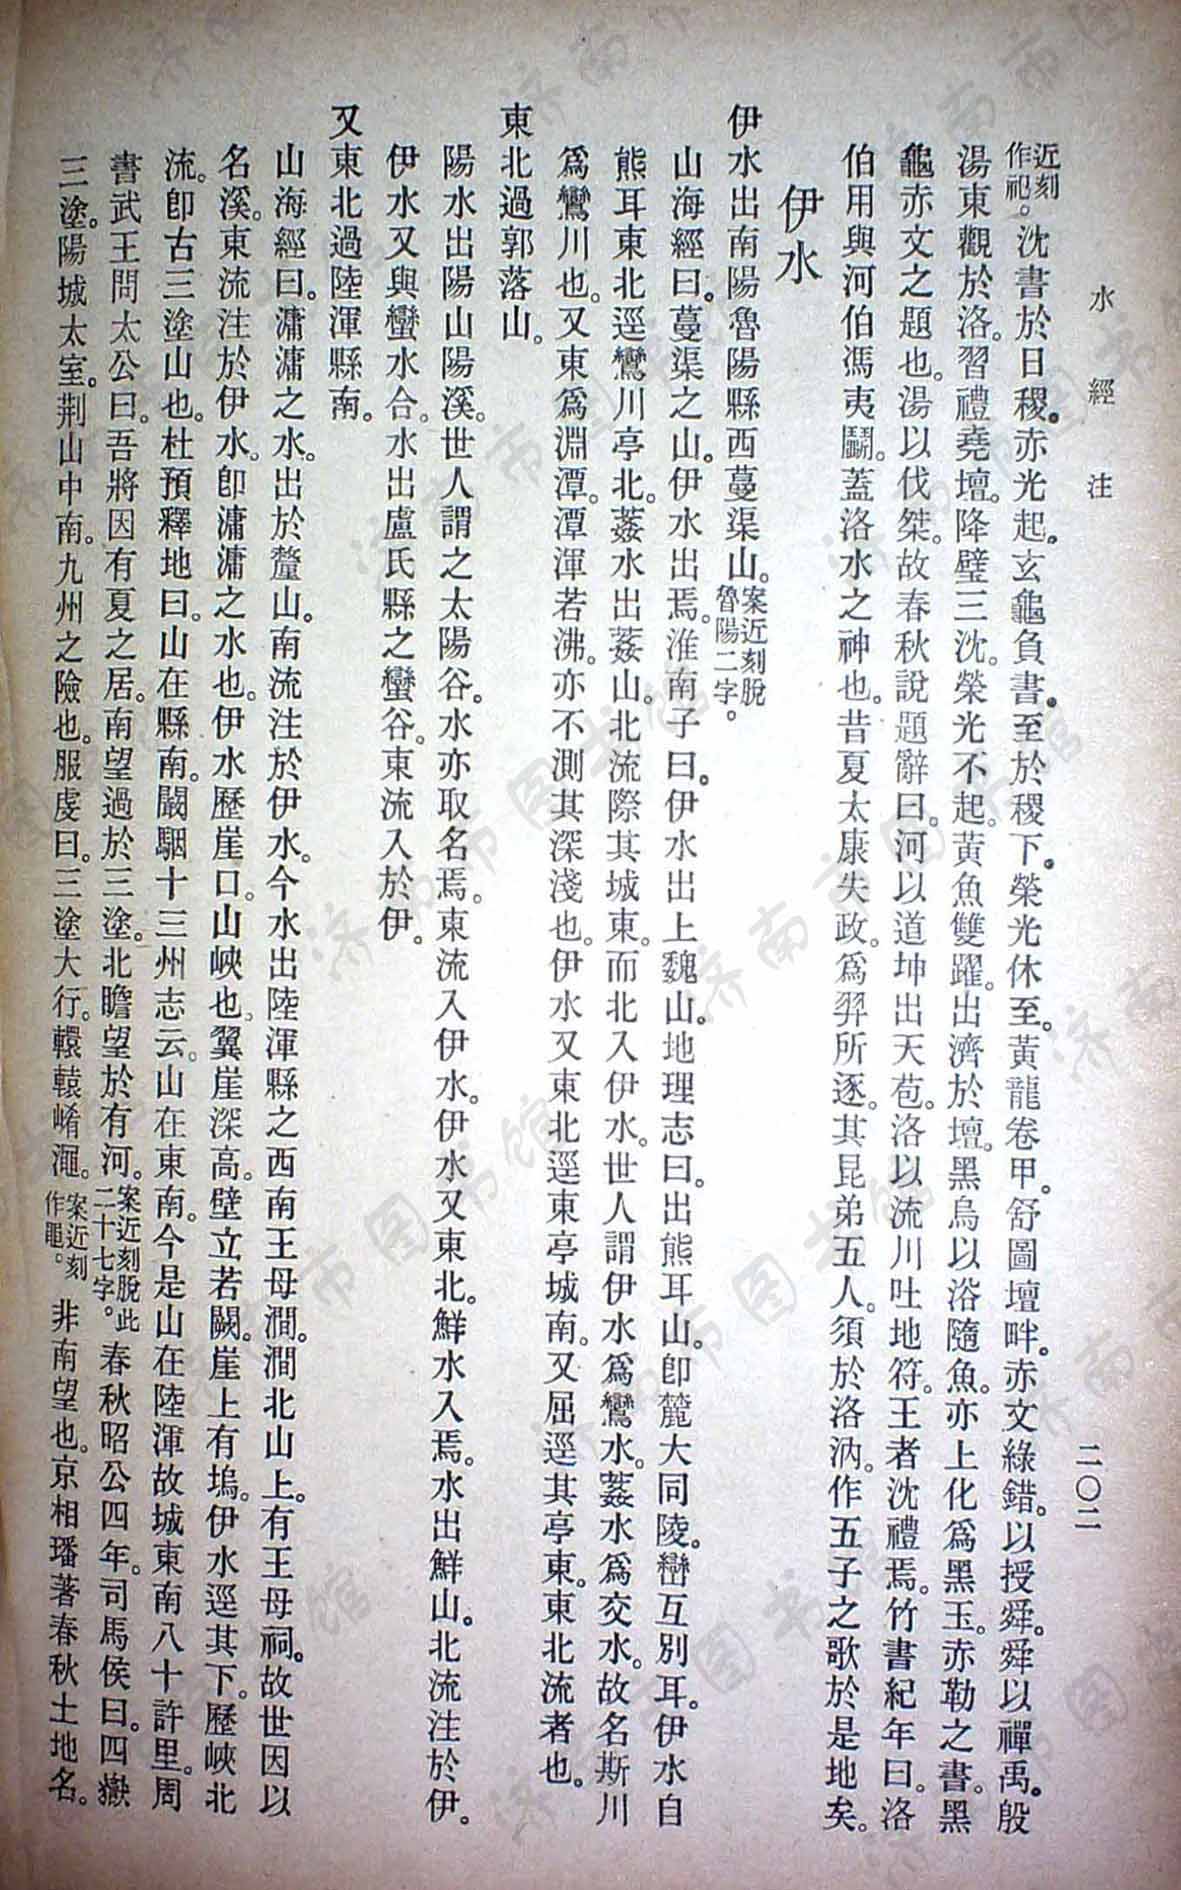 水經注
二〇二
近刻作祀。沈書於日稷。赤光起。玄龜負書。至於稷下。榮光休至。黃龍卷甲。舒圖壇畔。赤文綠錯。以授舜。舜以禪禹。殷
湯東觀於洛。習禮堯壇。降璧三沈。榮光不起。黃魚雙躍。出濟於壇。黑烏以浴。隨魚亦上。化爲黑玉。赤勒之書。黑
龜赤文之題也。湯以伐桀。故春秋說題辭曰。河以道坤出天苞。洛以流川吐地符。王者沈禮焉。竹書紀年曰。洛
伯用與河伯馮夷鬭。蓋洛水之神也。昔夏太康失政。爲羿所逐。其昆弟五人。須於洛汭。作五子之歌於是地矣。
伊水
伊水出南陽魯陽縣西蔓渠山。案近刻脫魯陽二字。
山海經曰。蔓渠之山。伊水出焉。淮南子曰。伊水出上魏山。地理志曰。出熊耳山。卽麓大同陵。巒互別耳。伊水自
熊耳東北逕鸞川亭北。葌水出葌山。北流際其城東。而北入伊水。世人謂伊水爲鸞水。葌水爲交水。故名斯川
爲鸞川也。又東爲淵潭。潭渾若沸。亦不測其深淺也。伊水又東北逕東亭城南。又屈逕其亭東。東北流者也。
東北過郭落山。
陽水出陽山陽溪。世人謂之太陽谷。水亦取名焉。東流入伊水。伊水又東北。鮮水入焉。水出鮮山。北流注於伊。
伊水又與蠻水合。水出盧氏縣之蠻谷。東流入於伊。
又東北過陸渾縣南。
山海經曰。滽滽之水。出於釐山。南流注於伊水。今水出陸渾縣之西南王母澗。澗北山上。有王母祠。故世因以
名溪。東流注於伊水。卽滽滽之水也。伊水歷崖口。山峽也。翼崖深高。壁立若闕。崖上有塢。伊水逕其下。歷峽北
流。卽古三塗山也。杜預釋地曰。山在縣南。闞駰十三州志云。山在東南。今是山在陸渾故城東南八十許里。周
書武王問太公曰。吾將因有夏之居。南望過於三塗。北瞻望於有河。案近刻脫此二十七字。春秋昭公四年。司馬侯曰。四嶽
三塗。陽城太室。荆山中南。九州之險也。服虔曰。三塗大行。轘轅崤澠。案近刻作黽。非南望也。京相璠著春秋土地名。